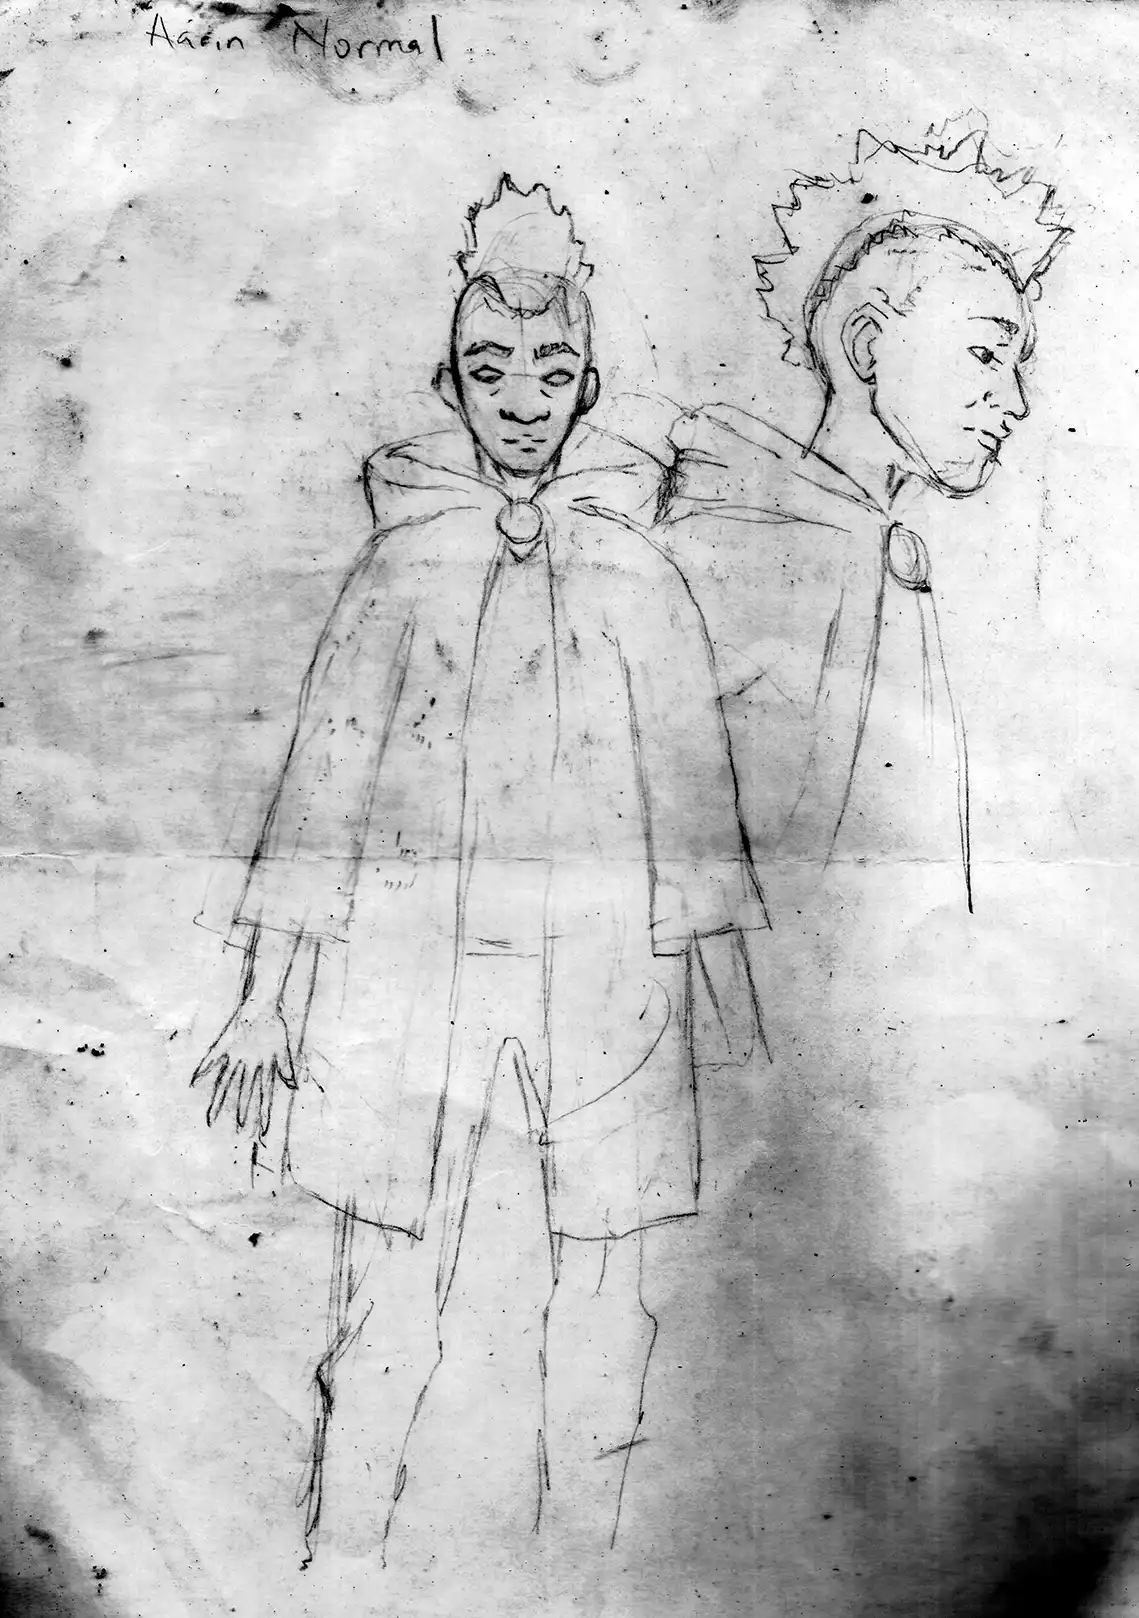 Aárin Normal